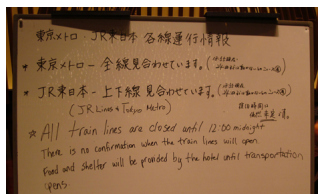 東京メトロ・JR東日本 各線運行情報
* 東京メトロ - 全線見合わせています。
* JR東日本 - 上下線見合わせています。
(JR Lines & Tokyo Metro)
復旧時間は
依然未定。
☆ All train lines are closed until 12:00 midnight
There is no confirmation when the train lines will open.
Food and shelter will be provided by the hotel until transportation
opens.